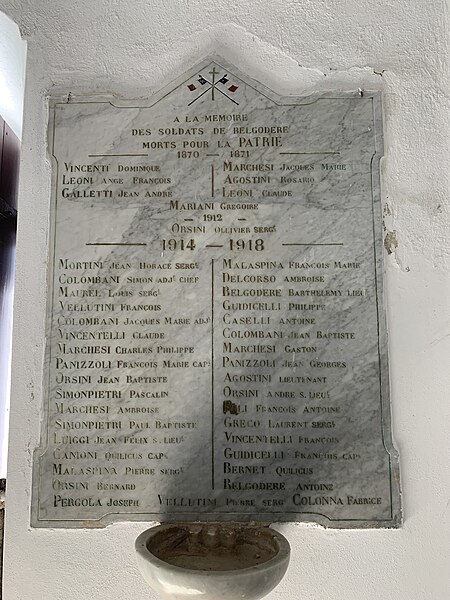 A LA MEMOIRE
DES SOLDATS DE BELGODERE
MORTS POUR LA PATRIE
1870 — 1871
VINCENTI DOMINIQUE
LEONI ANGE FRANCOIS
GALLETTI JEAN ANDRE
MARCHESI JACQUES MARIE
AGOSTINI ROSARIO
LEONI CLAUDE
MARIANI GREGOIRE
— 1912 —
ORSINI OLLIVIER SERGT
1914 — 1918
MORTINI JEAN HORACE SERGT
COLOMBANI SIMON ADJT CHEF
MAUREL LOUIS SERGT
VELLUTINI FRANCOIS
COLOMBANI JACQUES MARIE ADJT
VINCENTELLI CLAUDE
MARCHESI CHARLES PHILIPPE
PANIZZOLI FRANCOIS MARIE CAPL
ORSINI JEAN BAPTISTE
SIMONPIETRI PASCALIN
MARCHESI AMBROISE
SIMONPIETRI PAUL BAPTISTE
LUIGGI JEAN FELIX S. LIEUT
CANIONI QUILICUS CAPL
MALASPINA PIERRE SERGT
ORSINI BERNARD
MALASPINA FRANCOIS MARIE
DELCORSO AMBROISE
BELGODERE BARTHELEMY LIEUT
GUIDICELLI PHILIPPE
CASELLI ANTOINE
COLOMBANI JEAN BAPTISTE
MARCHESI GASTON
PANIZZOLI JEAN GEORGES
AGOSTINI LIEUTENANT
ORSINI ANDRE S. LIEUT
FRANCOIS ANTOINE
GRECO LAURENT SERGT
VINCENTELLI FRANCOIS
GUIDICELLI FRANCOIS CAPL
BERNET QUILICUS
BELGODERE ANTOINE
PERGOLA JOSEPH VELLUTINI PIERRE SERGT COLONNA FABRICE